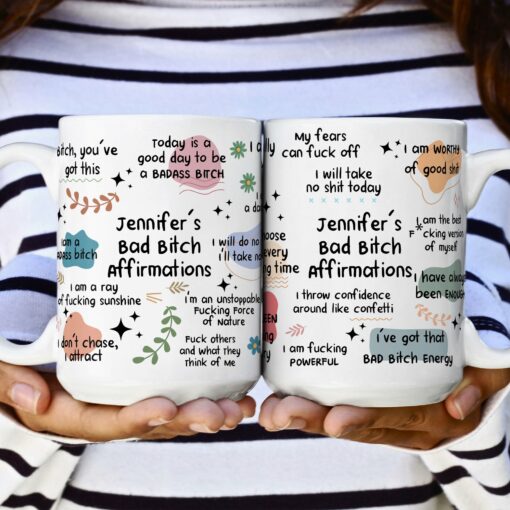 Bitch, you've
got this
Today is a
good day to be
a BADASS BITCH
Jennifer's
Bad Bitch
Affirmations
I am a
BADASS bitch
I will do no
i'll take no
I am a ray
of fucking sunshine
i'm an unstoppable
Fucking Force
of Nature
I don't chase,
attract
Fuck others
and what They
Think of Me
My fears
can fuck off
I will take
no shit today
I am WORTHY
of good shit
Jennifer's
Bad Bitch
Affirmations
I am the best
F*cking version
of myself
every
time
I have always
been ENOUGH
I throw confidence
around like confetti
I am fucking
POWERFUL
i've got that
BAD Bitch Energy